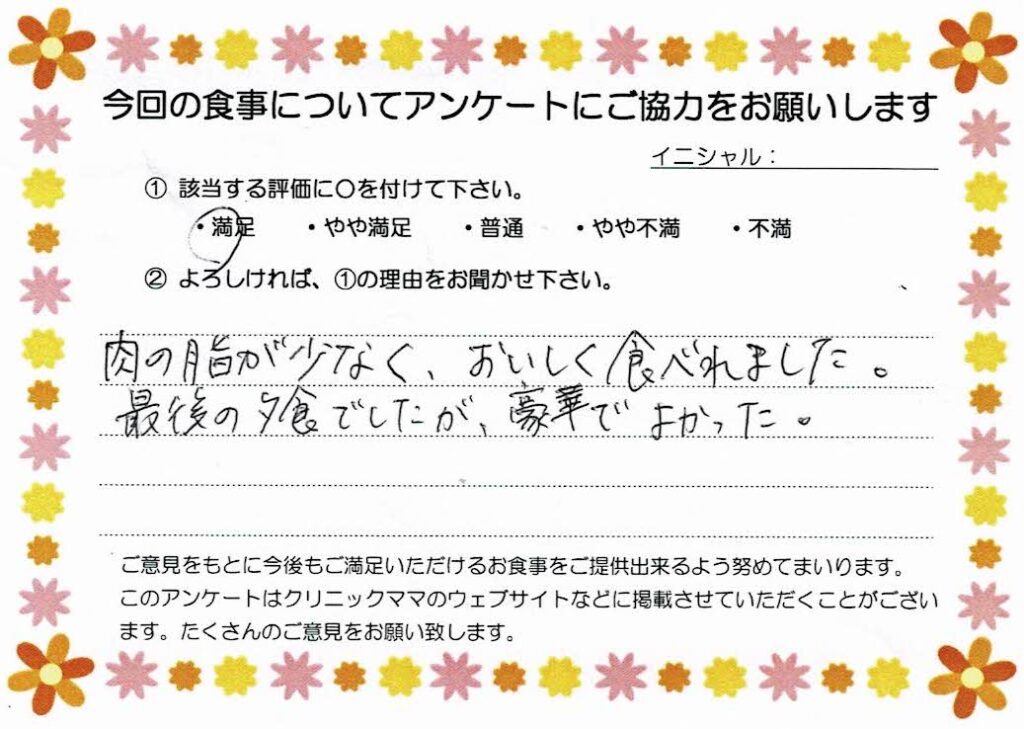 今回の食事についてアンケートにご協力をお願いします
イニシャル：
① 該当する評価に〇を付けて下さい。
・満足 ・やや満足 ・普通 ・やや不満 ・不満
② よろしければ、①の理由をお聞かせ下さい。
肉の脂が少なく、おいしく食べれました。
最後の夕食でしたが、豪華でよかった。
ご意見をもとに今後もご満足いただけるお食事をご提供出来るよう努めてまいります。
このアンケートはクリニックママのウェブサイトなどに掲載させていただくことがござい
ます。たくさんのご意見をお願い致します。